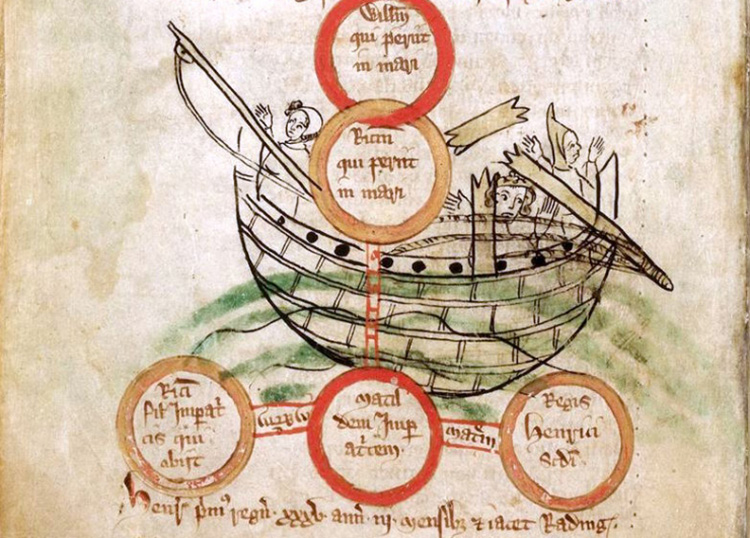 Willm
qui periit
in mari
Ricm
qui periit
in mari
Rici
fil Imperat
cis qui
obiit
Matil
dem Imp
atcem.
matrem
Regis
Henrici
Scdi.
Henr pm regn xxxv ann iii mensibz & iacet Rading.